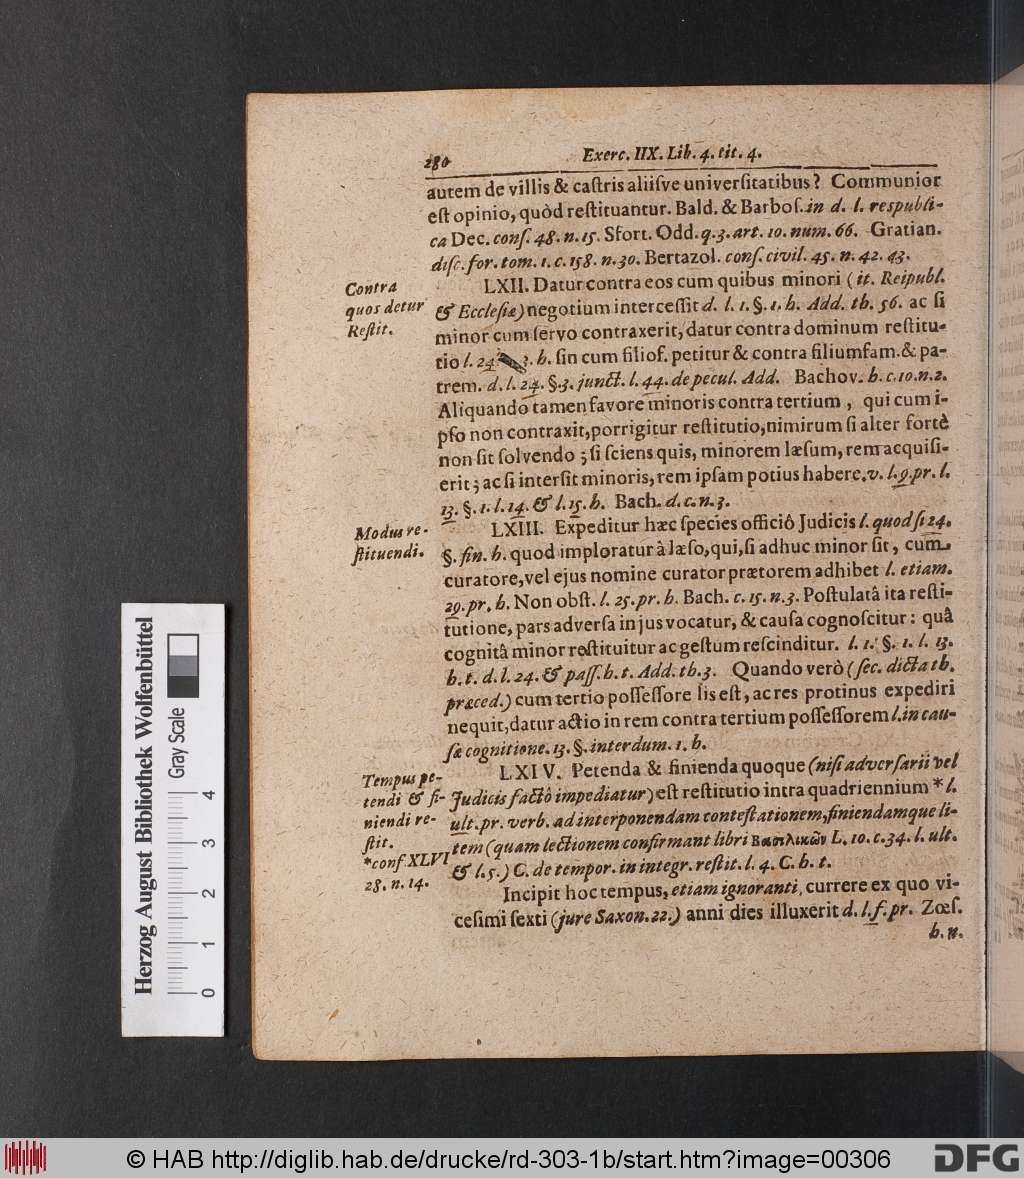 280 Exerc. IIX. Lib. 4. tit. 4.
autem de villis & caſtris aliiſve univerſitatibus? Communior
eſt opinio, quòd reſtituantur. Bald. & Barboſ. in d. l. reſpubli-
ca Dec. conſ. 48. n. 15. Sfort. Odd. q. 3. art. 10. num. 66. Gratian.
diſc. for. tom. 1. c. 158. n. 30. Bertazol. conſ. civil. 45. n. 42. 43.
Contra
quos detur
Reſtit.
LXII. Datur contra eos cum quibus minori (it. Reipubl.
& Eccleſiæ) negotium interceſſit d. l. 1. §. 1. h. Add. th. 56. ac ſi
minor cum ſervo contraxerit, datur contra dominum reſtitu-
tio l. 24. 3. h. ſin cum filiof. petitur & contra filiumfam. & pa-
trem. d. l. 24. §. 3. junct. l. 44. de pecul. Add. Bachov. h. c. 10. n. 2.
Aliquando tamen favore minoris contra tertium, qui cum i-
pſo non contraxit, porrigitur reſtitutio, nimirum ſi alter fortè
non ſit ſolvendo; ſi ſciens quis, minorem læſum, rem acquiſi-
erit; ac ſi interſit minoris, rem ipſam potius habere. v. l. 9. pr. l.
13. §. 1. l. 14. & l. 15. h. Bach. d. c. n. 3.
Modus re-
ſtituendi.
LXIII. Expeditur hæc ſpecies officiô Judicis l. quod ſi 24.
§. fin. h. quod imploratur à læſo, qui, ſi adhuc minor ſit, cum
curatore, vel ejus nomine curator prætorem adhibet l. etiam.
29. pr. h. Non obſt. l. 25. pr. h. Bach. c. 15. n. 3. Poſtulatâ ita reſti-
tutione, pars adverſa in jus vocatur, & cauſa cognoſcitur: quâ
cognitâ minor reſtituitur ac geſtum reſcinditur. l. 1. §. 1. l. 13.
h. t. d. l. 24. & paſſ. h. t. Add. th. 3. Quando verò (ſec. dicta th.
præced.) cum tertio poſſeſſore lis eſt, ac res protinus expediri
nequit, datur actio in rem contra tertium poſſeſſorem l. in cau-
ſæ cognitione. 13. §. interdum. 1. h.
Tempus pe-
tendi & fi-
niendi re-
ſtit.
*conf XLVI
28. n. 14.
LXIV. Petenda & finienda quoque (niſi adverſarii vel
Judicis factô impediatur) eſt reſtitutio intra quadriennium * l.
ult. pr. verb. ad interponendam conteſtationem, finiendamque li-
tem (quam lectionem confirmant libri Βασιλικῶν L. 10. c. 34. l. ult.
& l. 5.) C. de tempor. in integr. reſtit. l. 4. C. h. t.
Incipit hoc tempus, etiam ignoranti, currere ex quo vi-
ceſimi ſexti (jure Saxon. 22.) anni dies illuxerit d. l. f. pr. Zœſ.
h. n.
Herzog August Bibliothek Wolfenbüttel
Gray Scale
0 1 2 3 4
© HAB http://diglib.hab.de/drucke/rd-303-1b/start.htm?image=00306
DFG